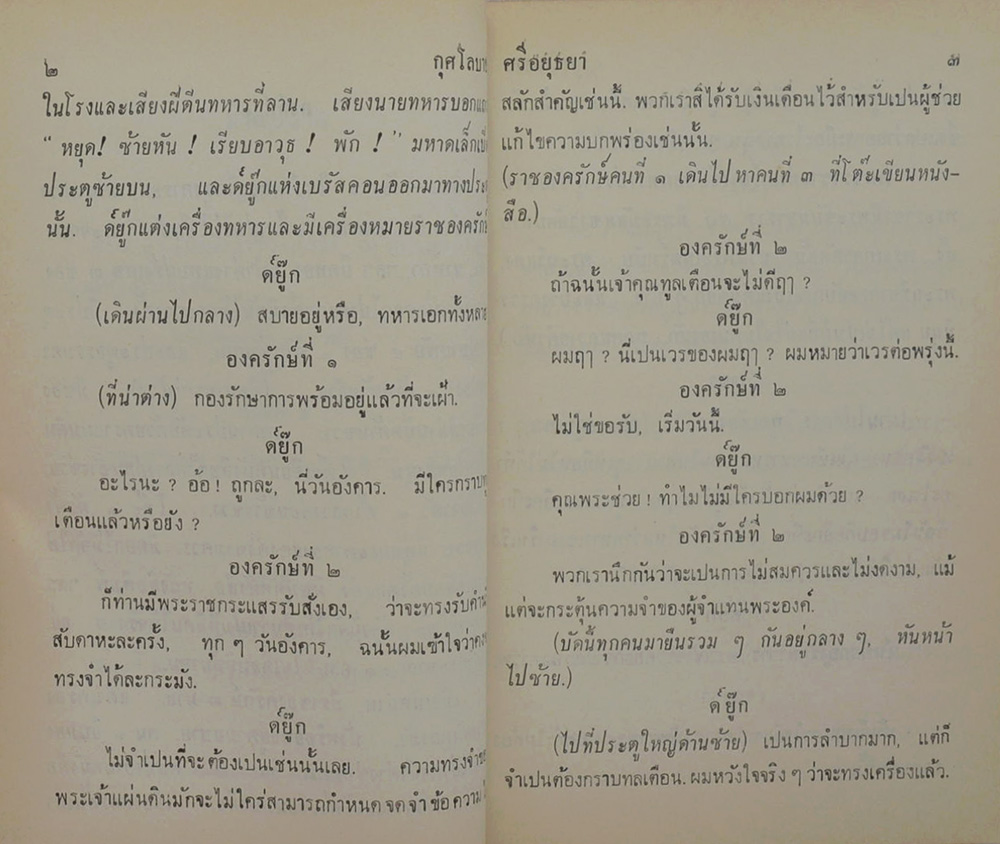 ๒ กุศโลบาย
ในโรงและเสียงฝีตีนทหารที่ลาน. เสียงนายทหารบอกแถว
“ หยุด! ซ้ายหัน ! เรียบอาวุธ ! พัก ! ” มหาดเล็กเปิด
ประตูซ้ายบน, และด์ยู๊กแห่งเบรัสคอนออกมาทางประตู
นั้น. ด์ยู๊กแต่งเครื่องทหารและมีเครื่องหมายราชองครักษ์
ด์ยู๊ก
(เดินผ่านไปกลาง) สบายอยู่หรือ, ทหารเอกทั้งหลาย
องครักษ์ที่ ๑
(ที่น่าต่าง) กองรักษาการพร้อมอยู่แล้วที่จะเฝ้า.
ด์ยู๊ก
อะไรนะ ? อ้อ! ถูกละ, นี่วันอังคาร. มีใครกราบทูล
เตือนแล้วหรือยัง ?
องครักษ์ที่ ๒
ก็ท่านมีพระราชกระแสรรับสั่งเอง, ว่าจะทรงรับคำนับ
สัปดาหะละครั้ง, ทุก ๆ วันอังคาร, ฉนั้นผมเข้าใจว่าคง
ทรงจำได้ละกระมัง.
ด์ยู๊ก
ไม่จำเปนที่จะต้องเปนเช่นนั้นเลย. ความทรงจำของ
พระเจ้าแผ่นดินมักจะไม่ใคร่สามารถกำหนดจดจำข้อความ
ศรีอยุธยา ๓
สลักสำคัญเช่นนี้. พวกเราสิได้รับเงินเดือนไว้สำหรับเปนผู้ช่วย
แก้ไขความบกพร่องเช่นนั้น.
(ราชองครักษ์คนที่ ๑ เดินไปหาคนที่ ๓ ที่โต๊ะเขียนหนัง-
สือ.)
องครักษ์ที่ ๒
ถ้าฉนั้นเจ้าคุณทูลเตือนจะไม่ดีฤๅ ?
ด์ยู๊ก
ผมฤๅ ? นี่เปนเวรของผมฤๅ ? ผมหมายว่าเวรต่อพรุ่งนี้.
องครักษ์ที่ ๒
ไม่ใช่ขอรับ, เริ่มวันนี้.
ด์ยู๊ก
คุณพระช่วย! ทำไมไม่มีใครบอกผมด้วย ?
องครักษ์ที่ ๒
พวกเรานึกกันว่าจะเปนการไม่สมควรและไม่งดงาม, แม้
แต่จะกระตุ้นความจำของผู้จำแทนพระองค์.
(บัดนี้ทุกคนมายืนรวม ๆ กันอยู่กลาง ๆ, หันหน้า
ไปซ้าย.)
ด์ยู๊ก
(ไปที่ประตูใหญ่ด้านซ้าย) เปนการลำบากมาก, แต่ก็
จำเปนต้องกราบทลเตือน. ผมหวังใจจริง ๆ ว่าจะทรงเครื่องแล้ว.